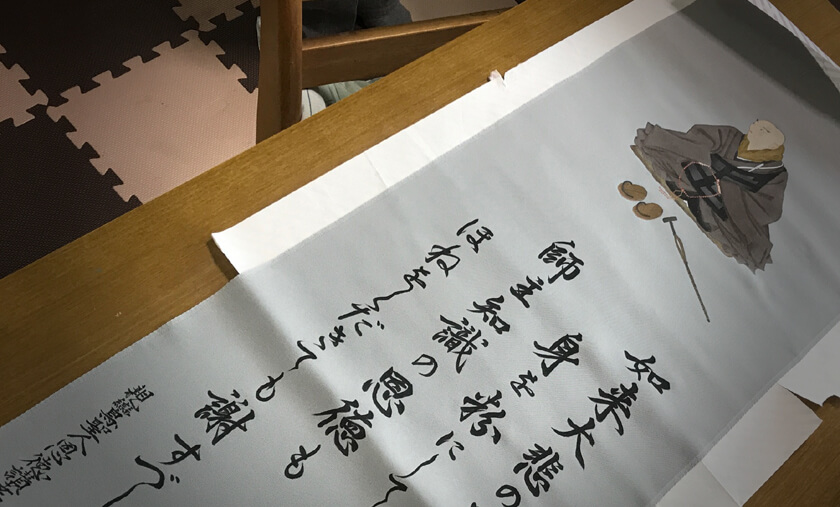 如来大悲の
身を粉にして
師主知識の恩徳も
ほねをくだきても謝すべし
親鸞聖人恩徳讃